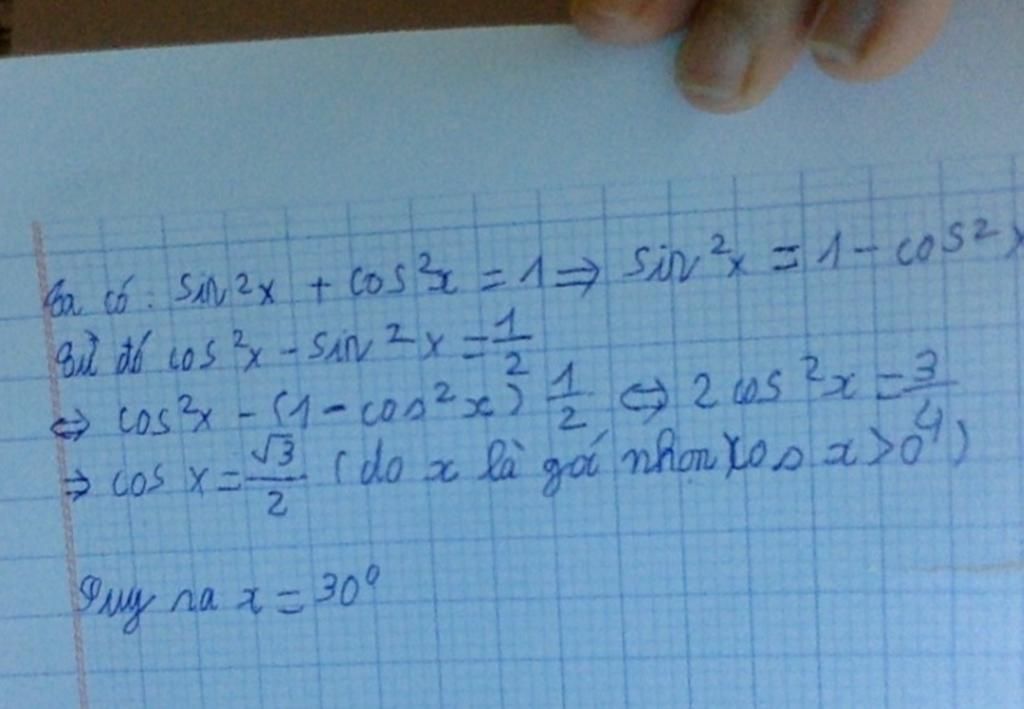 Ta có: sin²x + cos²x = 1 ⇒ sin²x = 1 - cos²x
Từ đó cos²x - sin²x = 1/2
⇔ cos²x - (1 - cos²x) 1/2 ⇔ 2cos²x = 3/4
⇒ cos x = √3/2 (do x là góc nhọn cos x > 0)
Suy ra x = 30°